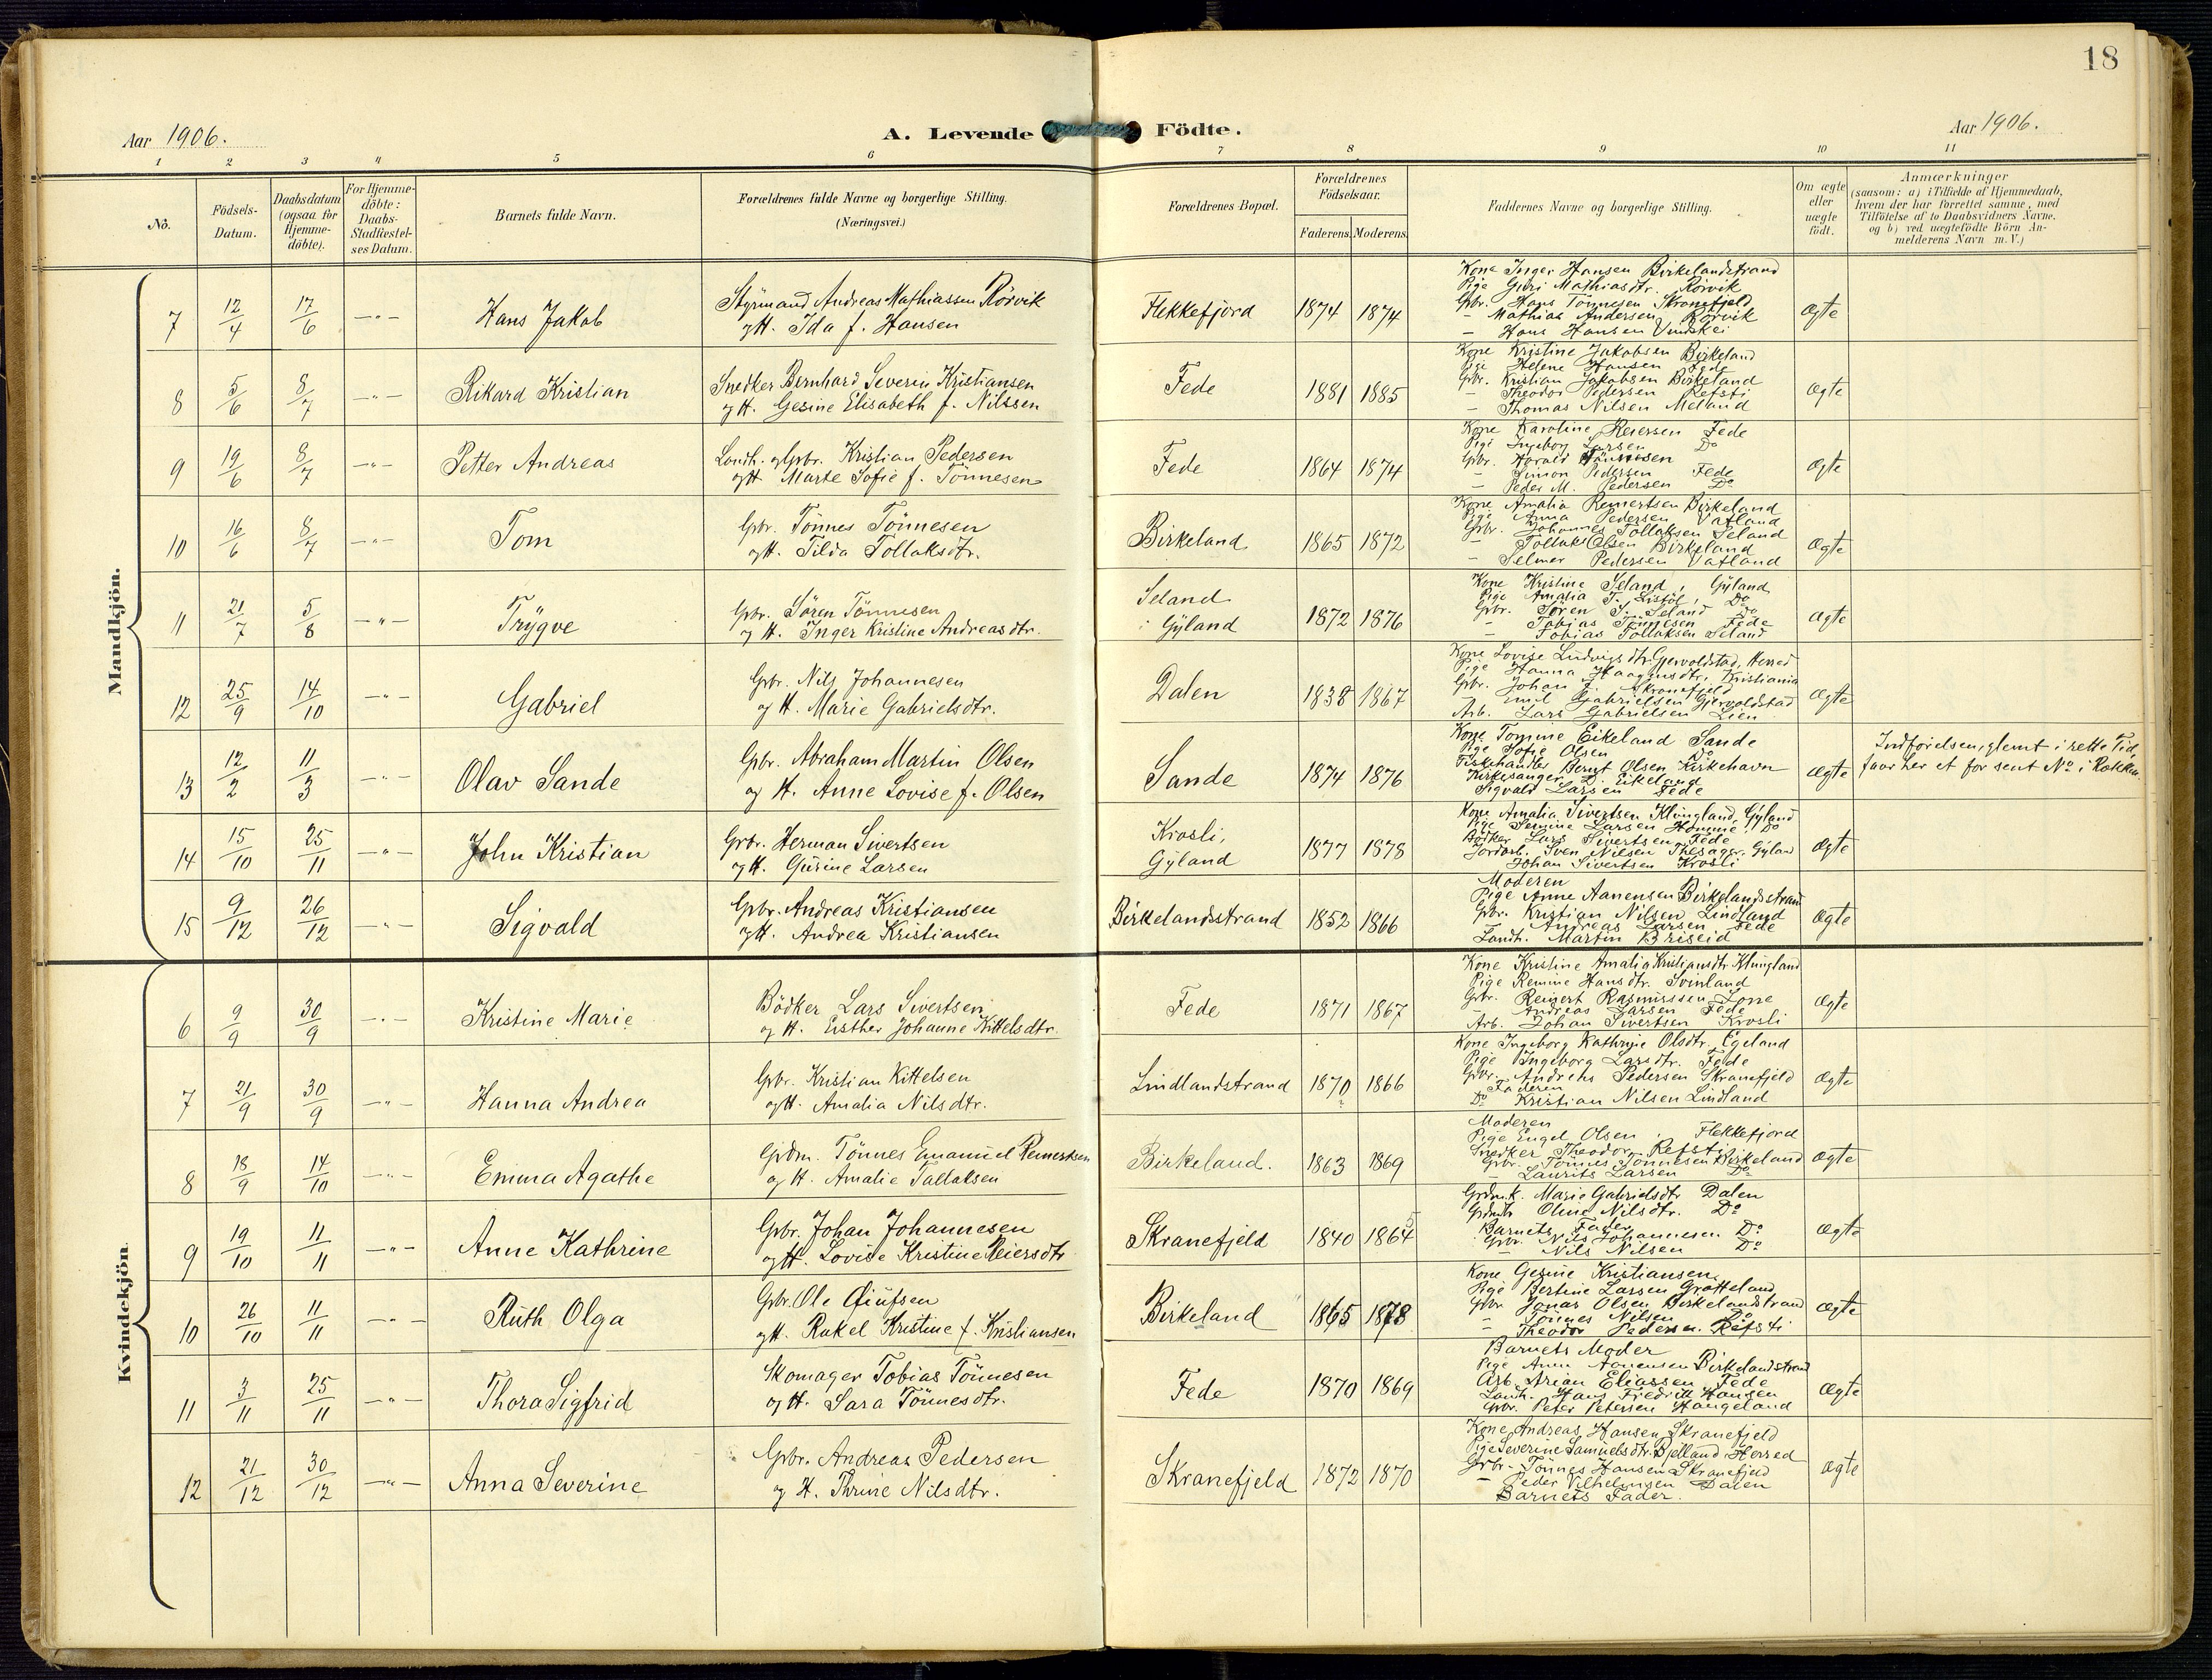 18
Aar 1906.
A. Levende Födte.
Aar 1906.
1 2 3 4 5 6 7 8 9 10 11
No.
Födsels-Datum.
Daabsdatum (ogsaa for Hjemme-döbte).
For Hjemme-döbte: Daabs-Stadfæstel-ses Datum.
Barnets fulde Navn.
Forældrenes fulde Navne og borgerlige Stilling.
(Næringsvei.)
Forældrenes Bopæl.
Forældrenes Födselsaar.
Faderens. Moderens.
Faddernes Navne og borgerlige Stilling.
Om ægte eller uægte födt.
Anmærkninger
(saasom: a) i Tilfælde af Hjemmedaab,
hvem der har forrettet samme, med
Tilföielse af to Daabsvidners Navne.
og b) ved uægtefödte Börn An-
melderens Navn m. V.)
Mandkjön.
7 12/4 17/6 —"— Hans Jakob
Styrmand Andreas Mathiassen Rörvik
og H. Ida f. Hansen
Flekkefjord 1874 1874
Kone Inger Hansen Birkelandstrand
Pige Guri Mathiasdtr. Rörvik
Gbr. Hans Tönnesen Skranefjeld
— Mathias Andersen Rörvik
— Hans Hansen
Ægte
8 5/6 8/7 —"— Rikard Kristian
Snedker Bernhard Severin Kristiansen
og H. Gesine Elisabeth f. Nilssen
Fede 1881 1885
Kone Kristine Jakobsen Birkeland
Pige Helene Hansen Fede
Gbr. Kristian Jakobsen Birkeland
— Theodor Pedersen Refsti
— Thomas Nilsen Meland
Ægte
9 19/6 8/7 —"— Petter Andreas
Landh. og Gbr. Kristian Pedersen
og H. Marte Sofie f. Tönnesen
Fede 1864 1874
Kone Karoline Reiersen Fede
Pige Ingeborg Larsen Do
Gbr. Harald Tönnesen
— Simon Pedersen Fede
— Peder M. Pedersen Do
Ægte
10 16/6 8/7 —"— Tom
Gbr. Tönnes Tönnesen
og H. Tilda Tollaksdtr.
Birkeland 1865 1872
Kone Amalia Reinertsen Birkeland
Pige Anna Pedersen Vatland
Gbr. Johannes Tollaksen Seland
— Tollak Olsen Birkeland
— Selmer Pedersen Vatland
Ægte
11 21/7 5/8 —"— Trygve
Gbr. Sören Tönnesen
og H. Inger Kristine Andreasdtr.
Seland
i Gyland 1872 1876
Kone Kristine Seland, Gyland
Pige Amalia T. Do
Gbr. Sören S. Seland Do
— Tobias Tönnesen Fede
— Tobias Tollaksen Seland
Ægte
12 25/9 14/10 —"— Gabriel
Gbr. Nils Johannesen
og H. Marie Gabrielsdtr.
Dalen 1838 1867
Kone Lovise Ludvigsdtr. Gjervoldstad, Herred
Pige Hanna Kristiania
Gbr. Johan J. Skranefjeld
— Emil Gabrielsen Gjervoldstad
Arb. Lars Gabrielsen Lien
Ægte
13 12/2 11/3 —"— Olav Sande
Gbr. Abraham Martin Olsen
og H. Anne Lovise f. Olsen
Sande 1874 1876
Kone Tomine Eikeland Sande
Pige Sofie Olsen Do
Fiskehandler Bernt Olsen Kirkehavn
Kirkesanger D. Eikeland
Sigvald Larsen Fede
Ægte
Indförelsen, glemt i rette Tid,
faar her et for sent No i Rækken.
14 15/10 25/11 —"— John Kristian
Gbr. Herman Sivertsen
og H. Gurine Larsen
Krosli,
Gyland 1877 1878
Kone Amalia Sivertsen Klungland, Gyland
Pige Semine Larsen Homme, Do
Bödker Lars Sivertsen Fede
Jordarb. Sven Nilsen Gyland
Johan Sivertsen Krosli
Ægte
15 9/12 26/12 —"— Sigvald
Gbr. Andreas Kristiansen
og H. Andrea Kristiansen
Birkelandsstrand 1852 1866
Moderen
Pige Anne Aanensen Birkelandsstrand
Gbr. Kristian Nilsen Lindland
— Andreas Larsen Fede
Landh. Martin Briseid
Ægte
Kvindekjön.
6 9/9 30/9 —"— Kristine Marie
Bödker Lars Sivertsen
og H. Esther Johanne Kittelsdtr.
Fede 1871 1867
Kone Kristine Amalia Kristiansdtr. Klungland
Pige Remine Hansdtr. Svinland
Gbr. Reinert Rasmussen Lone
— Andreas Larsen Fede
Arb. Johan Sivertsen Krosli
Ægte
7 21/9 30/9 —"— Hanna Andrea
Gbr. Kristian Kittelsen
og H. Amalia Nilsdtr.
Lindlandstrand 1870 1866
Kone Ingeborg Kathrine Olsdtr. Egeland
Pige Ingeborg Larsdtr. Fede
Gbr. Andreas Pedersen Skranefjeld
— Faderen
Do Kristian Nilsen Lindland
Ægte
8 18/9 14/10 —"— Emma Agathe
Grdm. Tönnes Emanuel Reinertsen
og H. Amalie Tallaksen
Birkeland. 1863 1869
Moderen
Pige Engel Olsen Flekkefjord
Snedker Theodor Refsti
Gbr. Tönnes Tönnesen Birkeland
— Laurits Larsen Do
Ægte
9 19/10 11/11 —"— Anne Kathrine
Gbr. Johan Johannesen
og H. Lovise Kristine Reiersdtr
Skranefjeld 1840 1864 5
Grdmk. Marie Gabrielsdtr Dalen
Oline Nilsdtr. Do
Barnets Fader
Gbr. Nils Johannesen Do
— Nils Nilsen Do
Ægte
10 26/10 11/11 —"— Ruth Olga
Gbr. Ole
og H. Rakel Kristine f. Kristiansen
Birkeland 1865 1878
Kone Gesine Kristiansen
Pige Bertine Larsen Grøtteland
Gbr. Jonas Olsen Birkelandstrand
— Tönnes Nilsen Do
— Theodor Pedersen Refsti
Ægte
11 3/11 25/11 —"— Thora Sigfrid
Skomager Tobias Tönnesen
og H. Sara Tönnesdtr.
Fede 1870 1869
Barnets Moder
Pige Anne Aanensen Birkelandstrand
Arb. Arian Eliassen Fede
Landh. Hans Fredrik Hansen
Gbr. Peter Petersen Haugeland
Ægte
12 21/12 30/12 —"— Anna Severine
Gbr. Andreas Pedersen
og H. Thrine Nilsdtr.
Skranefjeld 1872 1870
Kone Andreas Hansen Skranefjeld
Pige Severine Samuelsdtr. Fjelland Herred
Gbr. Tönnes Hansen Skranefjeld
— Peder Vilhelmsen Dalen
Barnets Fader.
Ægte